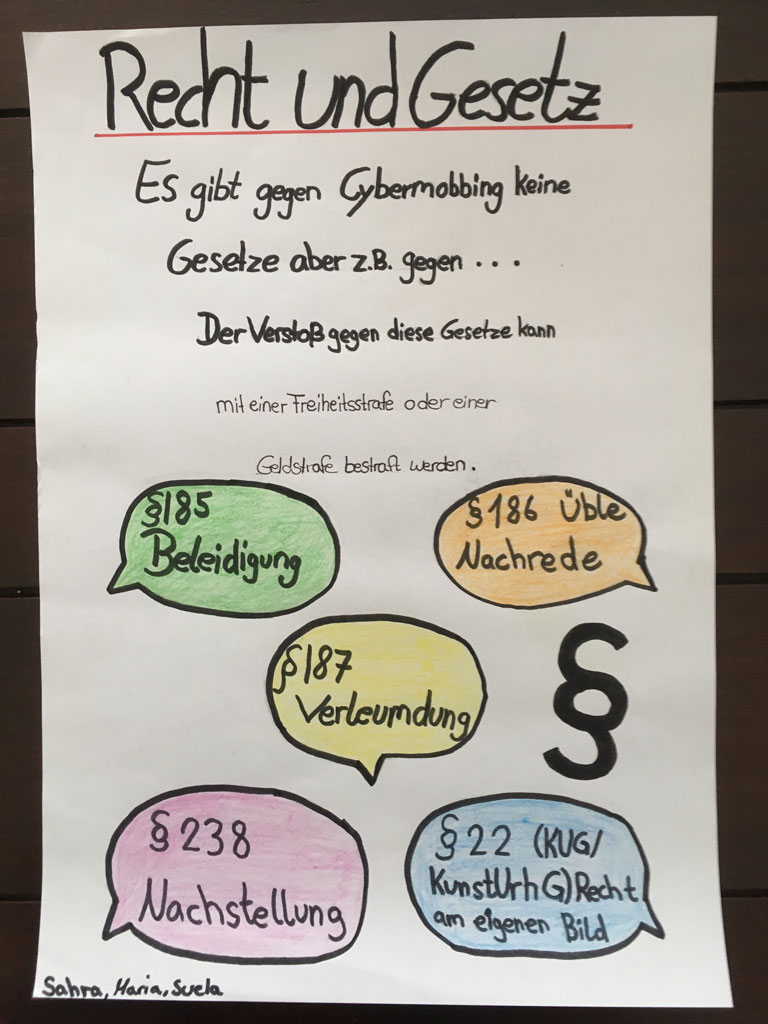 Recht und Gesetz
Es gibt gegen Cybermobbing keine
Gesetze aber z.B. gegen ...
Der Verstoß gegen diese Gesetze kann
mit einer Freiheitsstrafe oder einer
Geldstrafe bestraft werden.
§185
Beleidigung
§186 Üble
Nachrede
§187
Verleumdung
§
§238
Nachstellung
§22 (KUG/
KunstUrhG)Recht
am eigenen Bild
Sahra, Maria, Suela